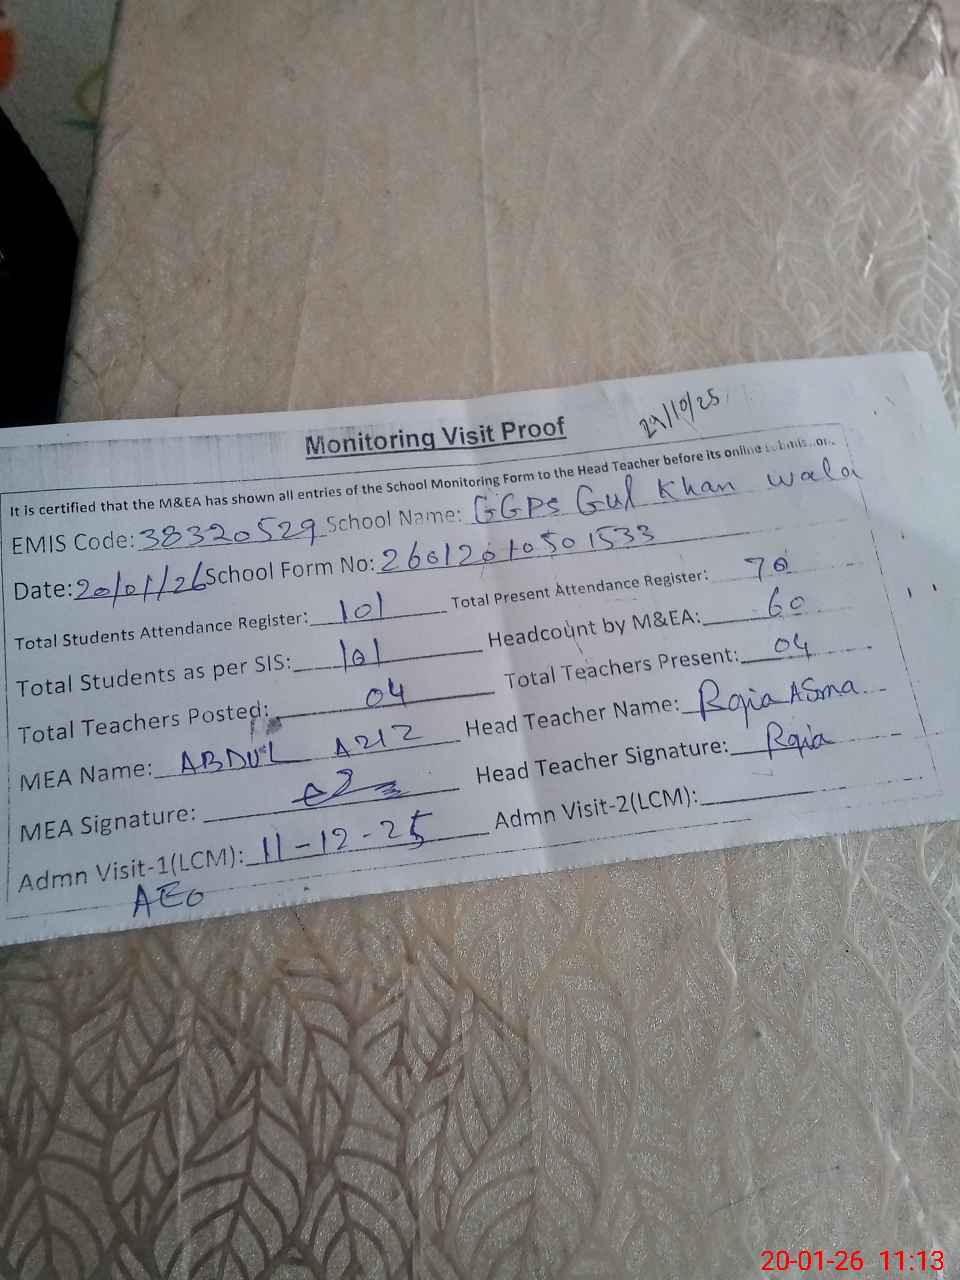 Monitoring Visit Proof
29/10/25
It is certified that the M&EA has shown all entries of the School Monitoring Form to the Head Teacher before its online submission.
EMIS Code: 38320529 School Name: GGPS Gul Khan wala
Date: 20/01/26 School Form No: 26012010501533
Total Students Attendance Register: 101 Total Present Attendance Register: 70
Total Students as per SIS: 101 Headcount by M&EA: 60
Total Teachers Posted: 04 Total Teachers Present: 04
MEA Name: ABDUL AZIZ Head Teacher Name: Rqia ASma
MEA Signature: Head Teacher Signature: Rqia
Admn Visit-1(LCM): 11-12-25 Admn Visit-2(LCM):
AEO
20-01-26 11:13